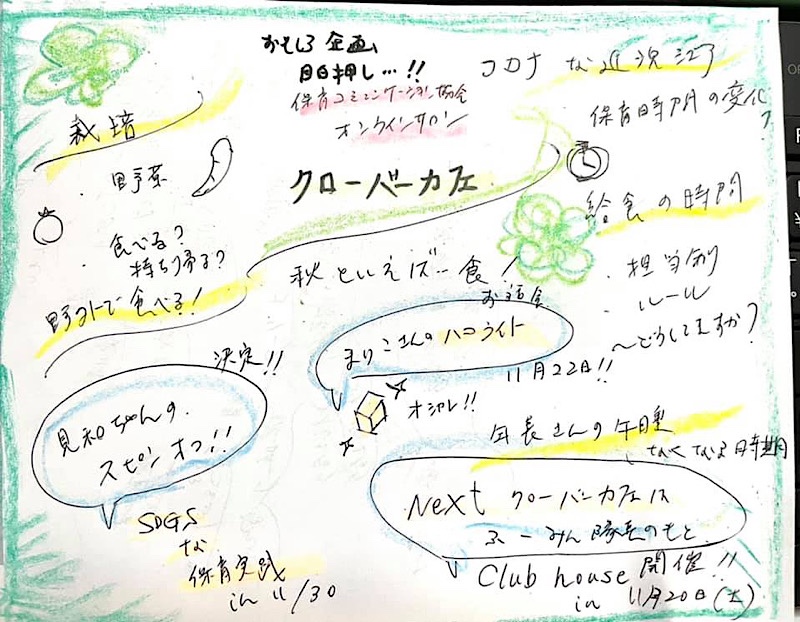 おもしろ企画
目白押し…!!
保育コミュニケーション協会
オンラインサロン
クローバーカフェ
コロナな近況
保育時間の変化?
栽培
・野菜
・食べる?
持ち帰る?
野外で食べる!
秋といえば…食!
給食の時間
・担当制
・ルール
〜どうしてますか?
お話会
まりこさんのハコライト
11月22日!!
オシャレ!!
決定!!
見和ちゃんの
スピンオフ!!
SDGS
な
保育実践
in 11/30
年長さんの午睡
なくなる時期
Next クローバーカフェは
ふーみん隊長のもと
Club house 開催!!
in 11月20日(土)